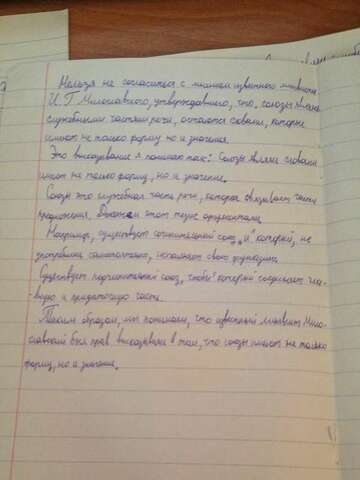 Нельзя не согласиться с мнением известного лингвиста
И.Г Милославского, утверждавшего, что, союзы являясь
служебными частями речи, остаются словами, которые
имеют не только форму но и значения.
Это высказывание я понимаю так: Союзы являясь словами
имеют не только форму, но и значение.
Союзы это служебная часть речи, которая связывает части
предложения. Докажем этот тезис аргументами.
Например, существует сочинительный союз „и" который, не
самостоятельно, исполняет свою функцию.
Существует подчинительный союз, „чтобы" который соединяет гла-
вную и придаточную части.
Таким образом, мы понимаем, что известный лингвист Мило-
славский был прав высказывая в том, что союзы имеют не только
форму, но и значение.